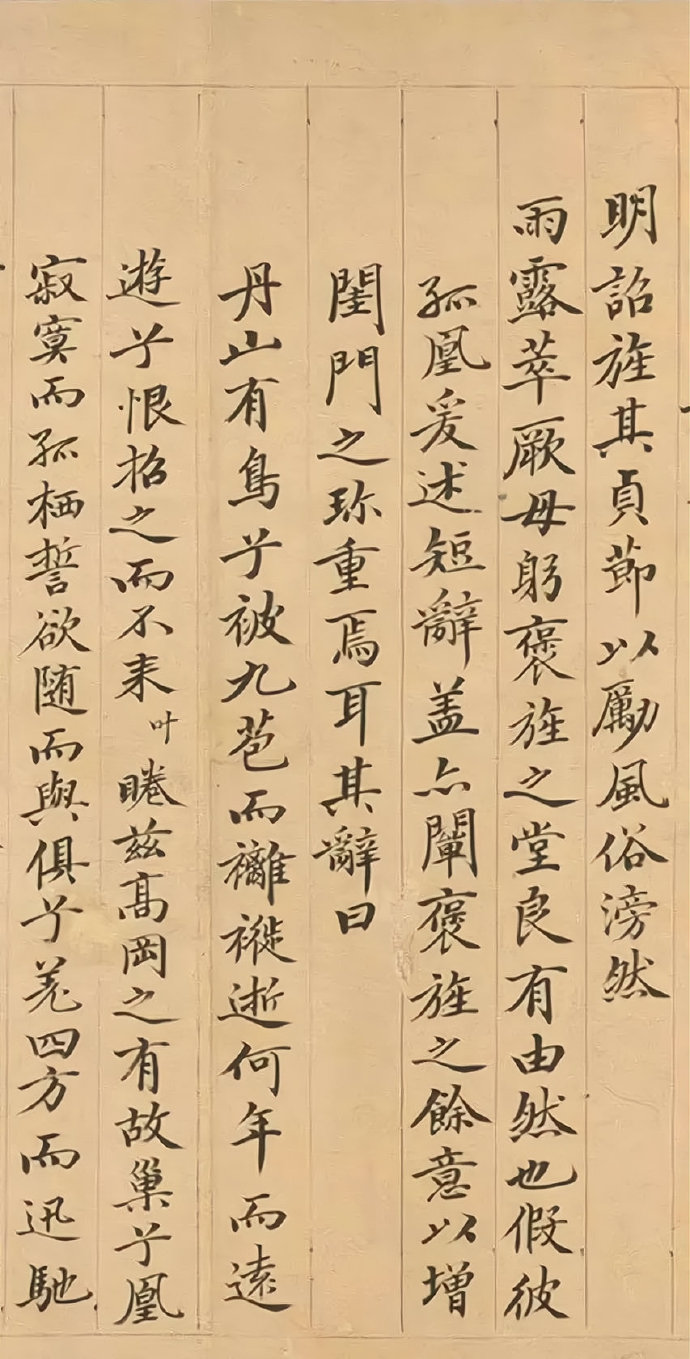 明詔旌其貞節以勵風俗滂然
雨露萃厥母躬褒旌之堂良有由然也假彼
孤凰爰述短辭盖亦闡褒旌之餘意以增
閨門之珎重焉耳其辭曰
丹山有鳥兮被九苞而襹褷逝何年而遠
遊兮恨招之而不来叶睠兹髙岡之有故巢兮凰
寂寞而孤栖誓欲随而與俱兮羗四方而迅馳